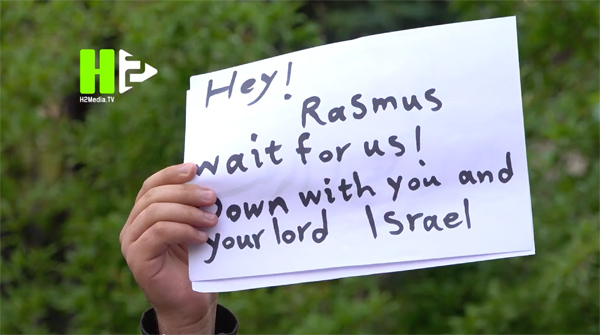 H2
H2Media.TV
Hey!
Rasmus
wait for us!
Down with you and
your lord Israel